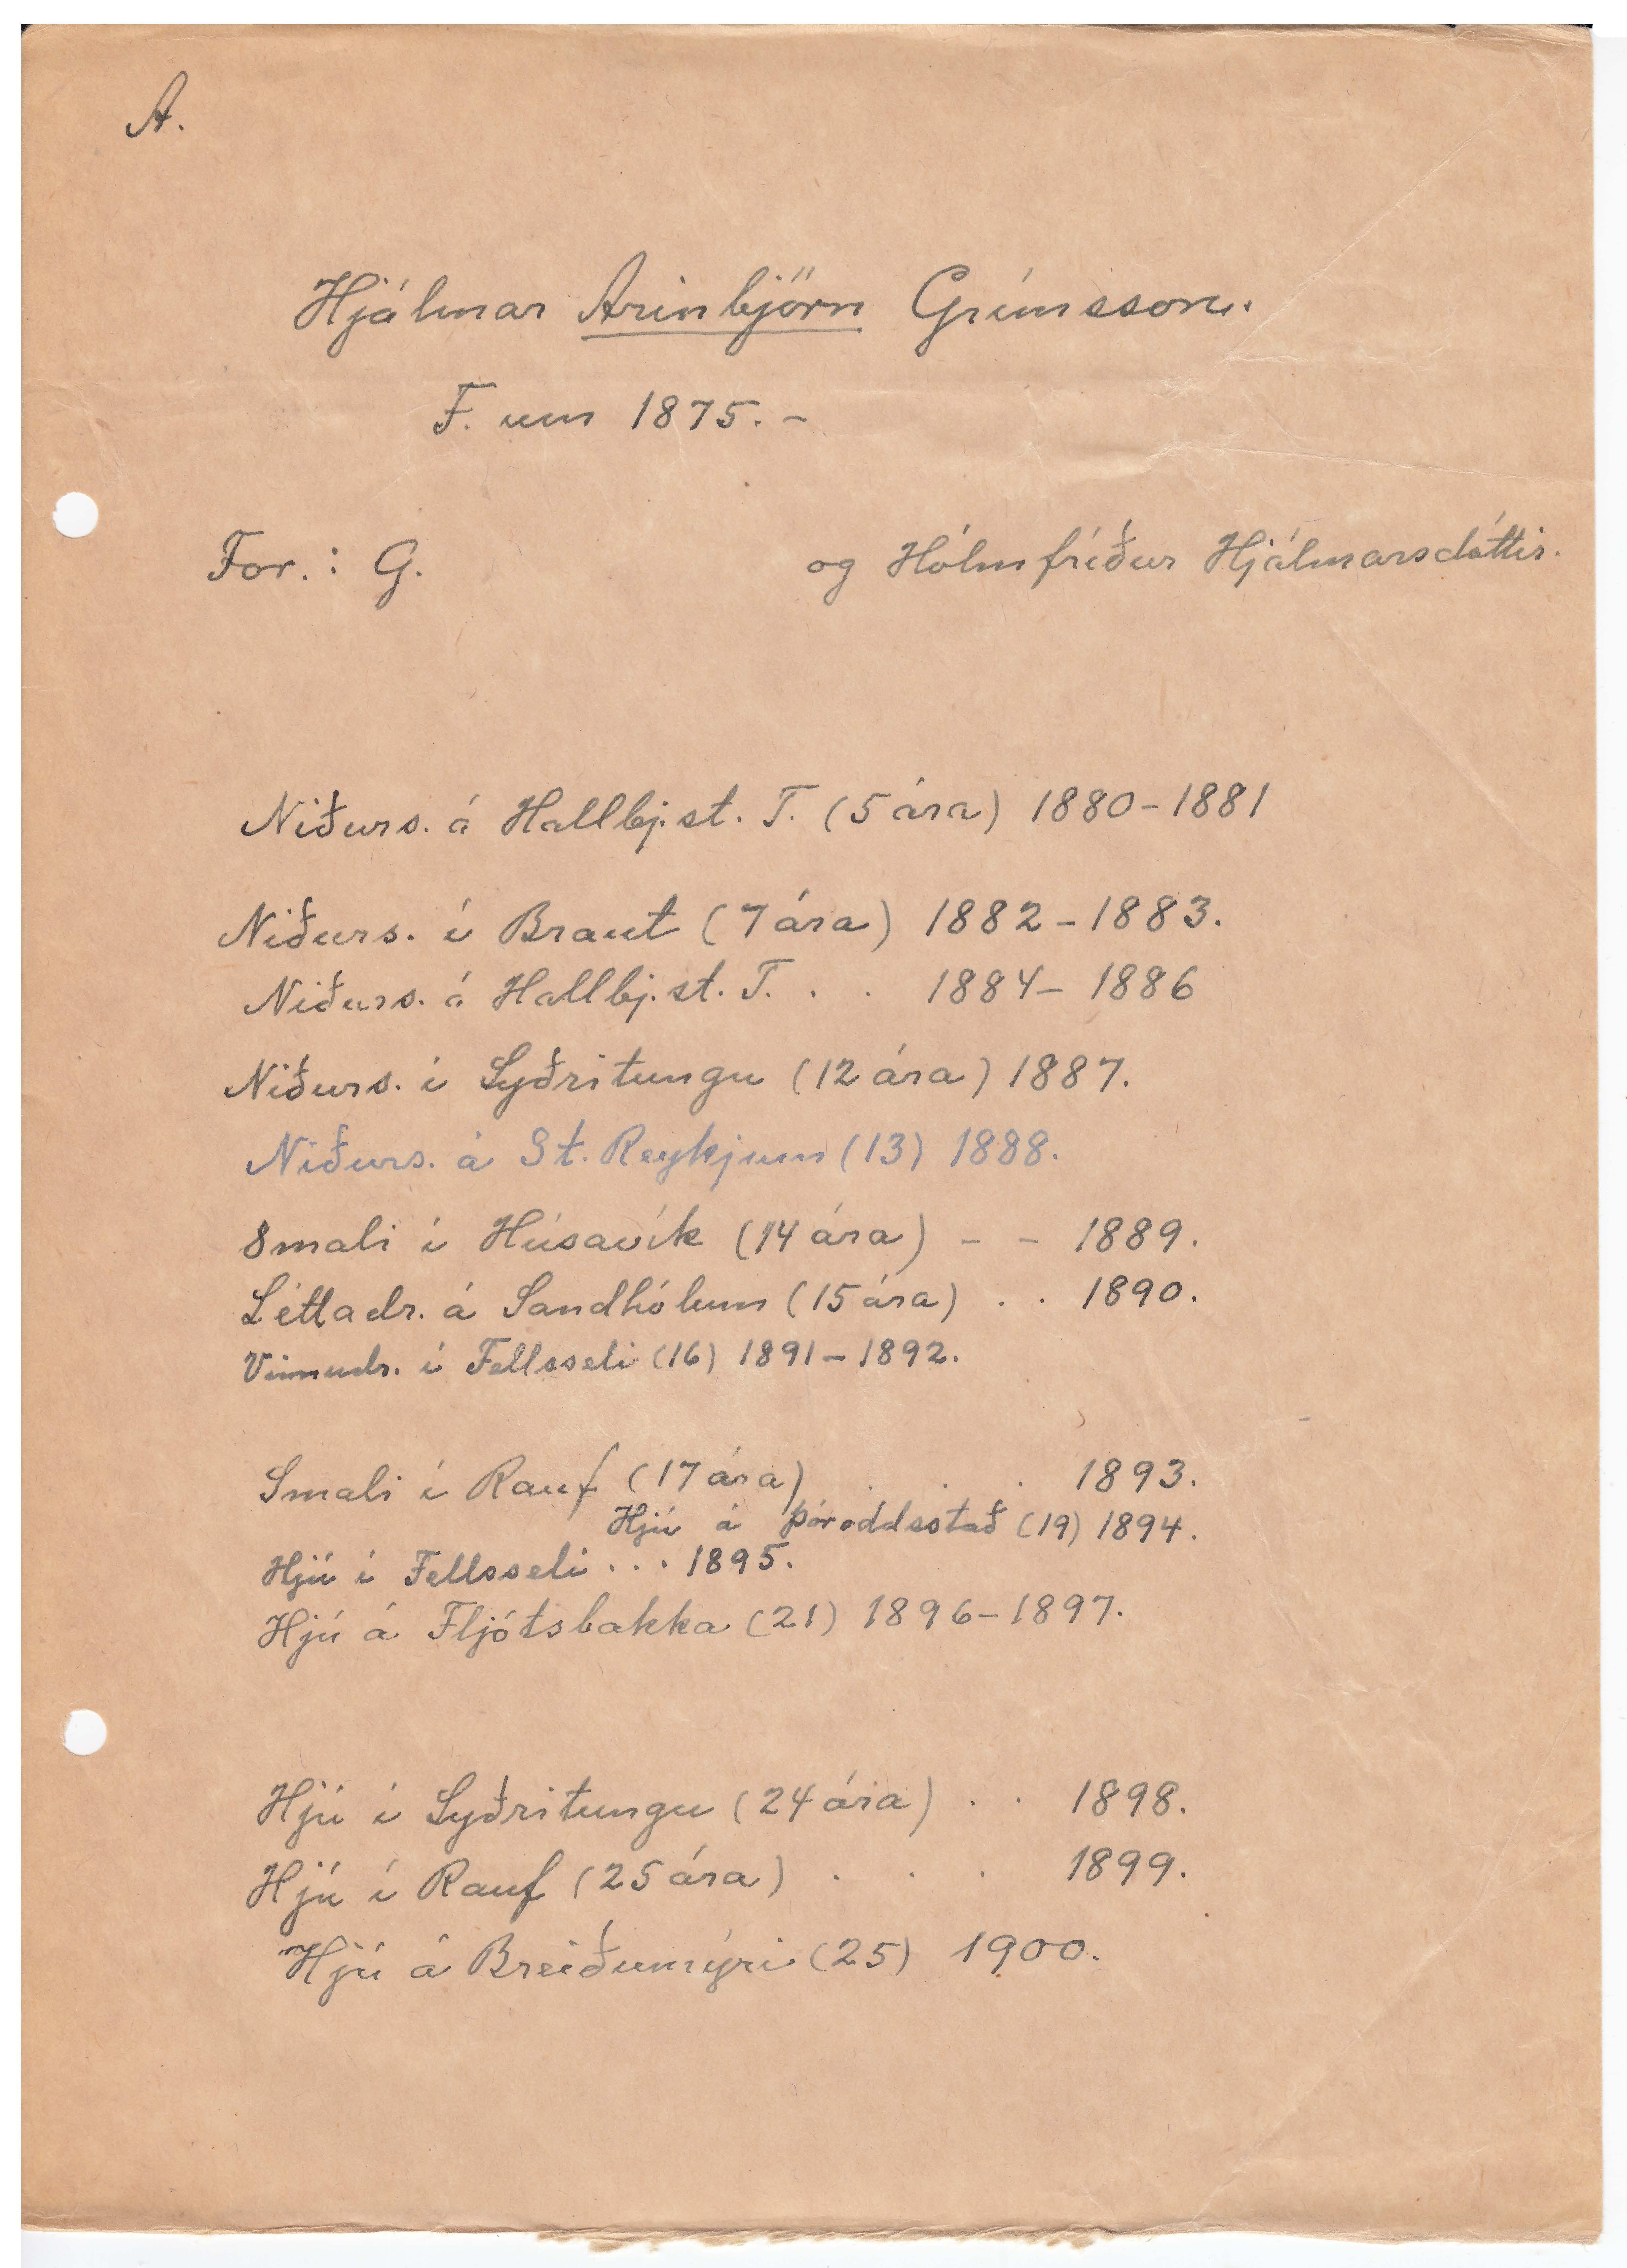 A.
Hjálmar Arinbjörn Grímsson.
F. um 1875. -
For.: G. og Hólmfríður Hjálmarsdóttir.
Niðurs. á Hallbj.st. T. (5 ára) 1880-1881
Niðurs. í Braut (7 ára) 1882-1883.
Niðurs. á Hallbj.st. T. . . 1884-1886
Niðurs. í Syðritungu (12 ára) 1887.
Niðurs. á St. Reykjum (13) 1888.
Smali í Húsavík (14 ára) - - 1889.
Léttadr. á Sandhólum (15 ára) . . 1890.
Vinnudr. í Fellsseli (16) 1891-1892.
Smali í Rauf (17 ára) . . . 1893.
Hjú á Þóroddsstað (19) 1894.
Hjú í Fellsseli . . . 1895.
Hjú á Fljótsbakka (21) 1896-1897.
Hjú í Syðritungu (24 ára) . . 1898.
Hjú í Rauf (25 ára) . . . 1899.
Hjú á Breiðumýri (25) 1900.